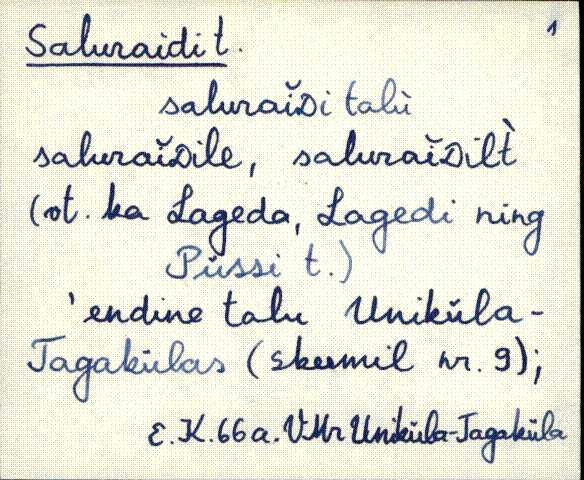 1
Saluraidi t.
saluraĭᴅi talù̬
saluraĭᴅile, saluraĭᴅilt̀
(vt. ka Lageda, Lagedi ning
Püssi t.)
'endine talu Uniküla-
Tagakülas (skeemil nr. 9);
E.K. 66 a. VMr Uniküla-Tagaküla